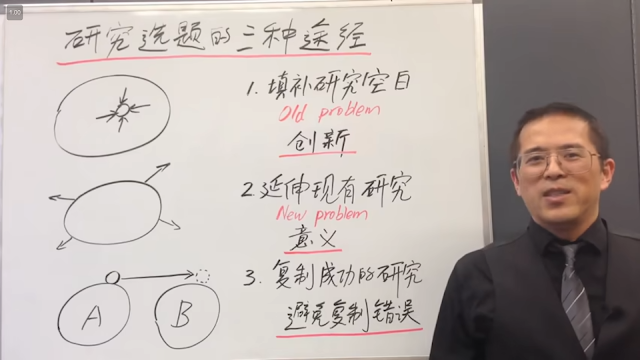 研究选题的三种途经
1. 填补研究空白
Old problem
创新
2. 延伸现有研究
New problem
意义
3. 复制成功的研究
避免复制错误
A
B